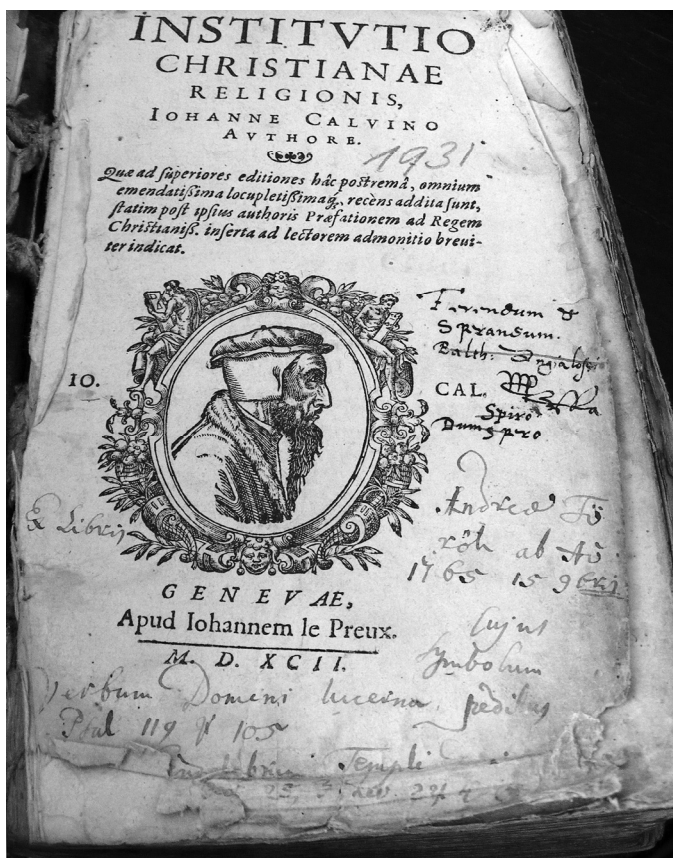 INSTITVTIO
CHRISTIANAE
RELIGIONIS,
IOHANNE CALVINO
AVTHORE.
1931
Quæ ad superiores editiones hâc postremâ, omnium
emendatißima locupletißimaq́;, recèns addita sunt,
statim post ipsius authoris Præfationem ad Regem
Christianiß. inserta ad lectorem admonitio breui-
ter indicat.
Ferendum &
Sperandum.
Balth:
IO.
CAL.
Spiro
Dum Spero
Ex Libris
Andreæ Tö
rök ab Aō
1765 15 9bris
GENEVAE,
Apud Iohannem le Preux.
M. D. XCII.
Cujus
Symbolum
Verbum Domini lucerna pedibus
Psal 119 ℣ 105
Templi